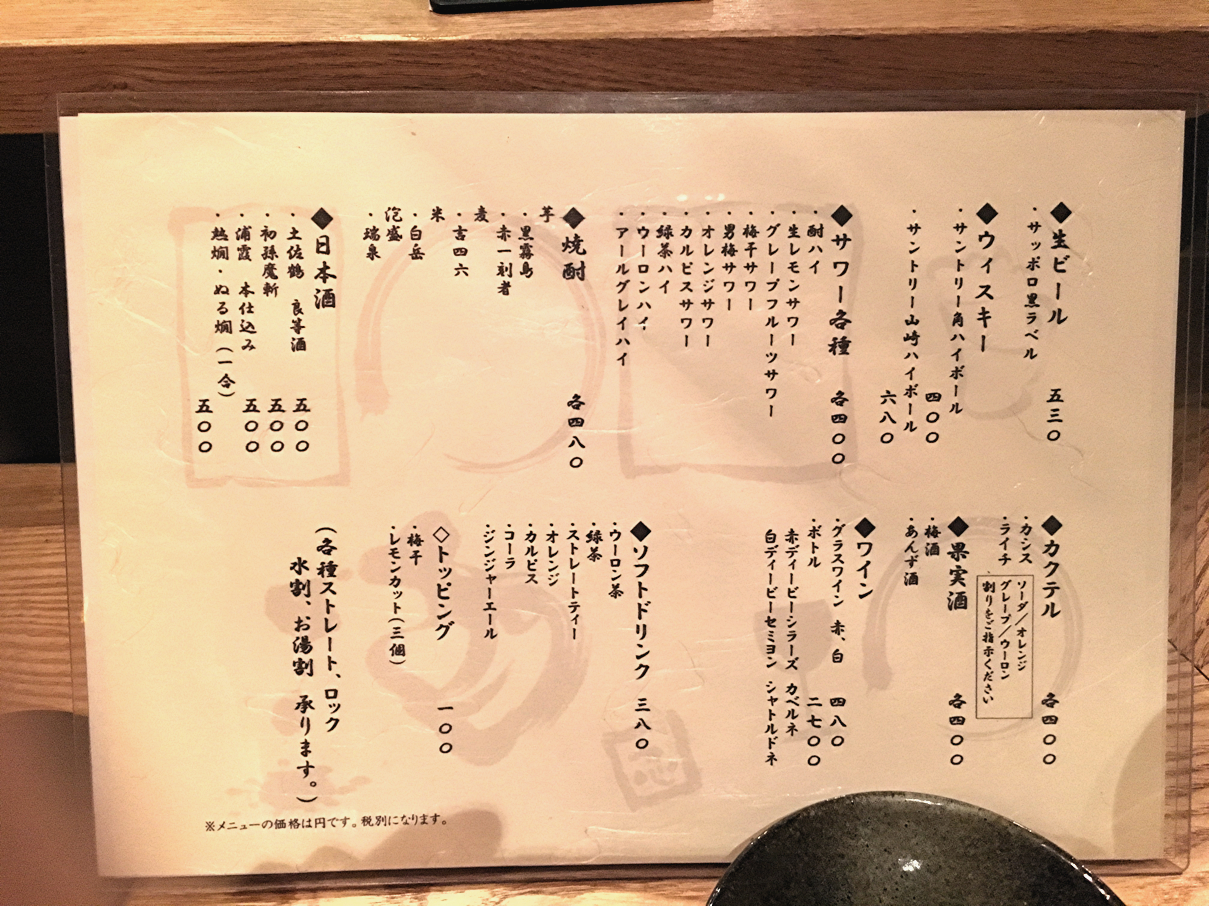 ◆生ビール 五三〇
・サッポロ黒ラベル
◆ウィスキー
・サントリー角ハイボール 四〇〇
・サントリー山崎ハイボール 六八〇
◆サワー各種 各四〇〇
・酎ハイ
・生レモンサワー
・グレープフルーツサワー
・梅干サワー
・男梅サワー
・オレンジサワー
・カルピスサワー
・緑茶ハイ
・ウーロンハイ
・アールグレイハイ
◆焼酎 各四八〇
芋
・黒霧島
・赤一刻者
麦
・吉四六
米
・白岳
泡盛
・瑞泉
◆日本酒
・土佐鶴 良等酒 五〇〇
・初孫魔斬 五〇〇
・浦霞 本仕込み 五〇〇
・熱燗・ぬる燗(一合) 五〇〇
◆カクテル 各四〇〇
・カシス
・ライチ
ソーダ/オレンジ
グレープ/ウーロン
割りをご指示ください
◆果実酒 各四〇〇
・梅酒
・あんず酒
◆ワイン
・グラスワイン 赤、白 四八〇
・ボトル 二七〇〇
赤ディービーシラーズ カベルネ
白ディービーセミヨン シャトルドネ
◆ソフトドリンク 三八〇
・ウーロン茶
・緑茶
・ストレートティー
・オレンジ
・カルピス
・コーラ
・ジンジャーエール
◇トッピング 一〇〇
・梅干
・レモンカット(三個)
(各種ストレート、ロック
水割、お湯割 承ります。)
※メニューの価格は円です。税別になります。